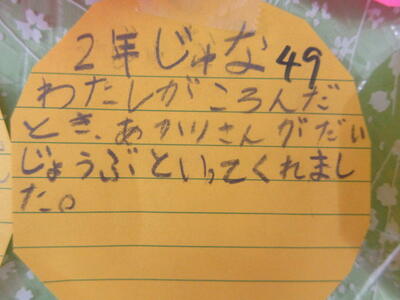 2年じゅな49
わたしがころんだ
とき、あかりさんがだい
じょうぶといってくれまし
た。